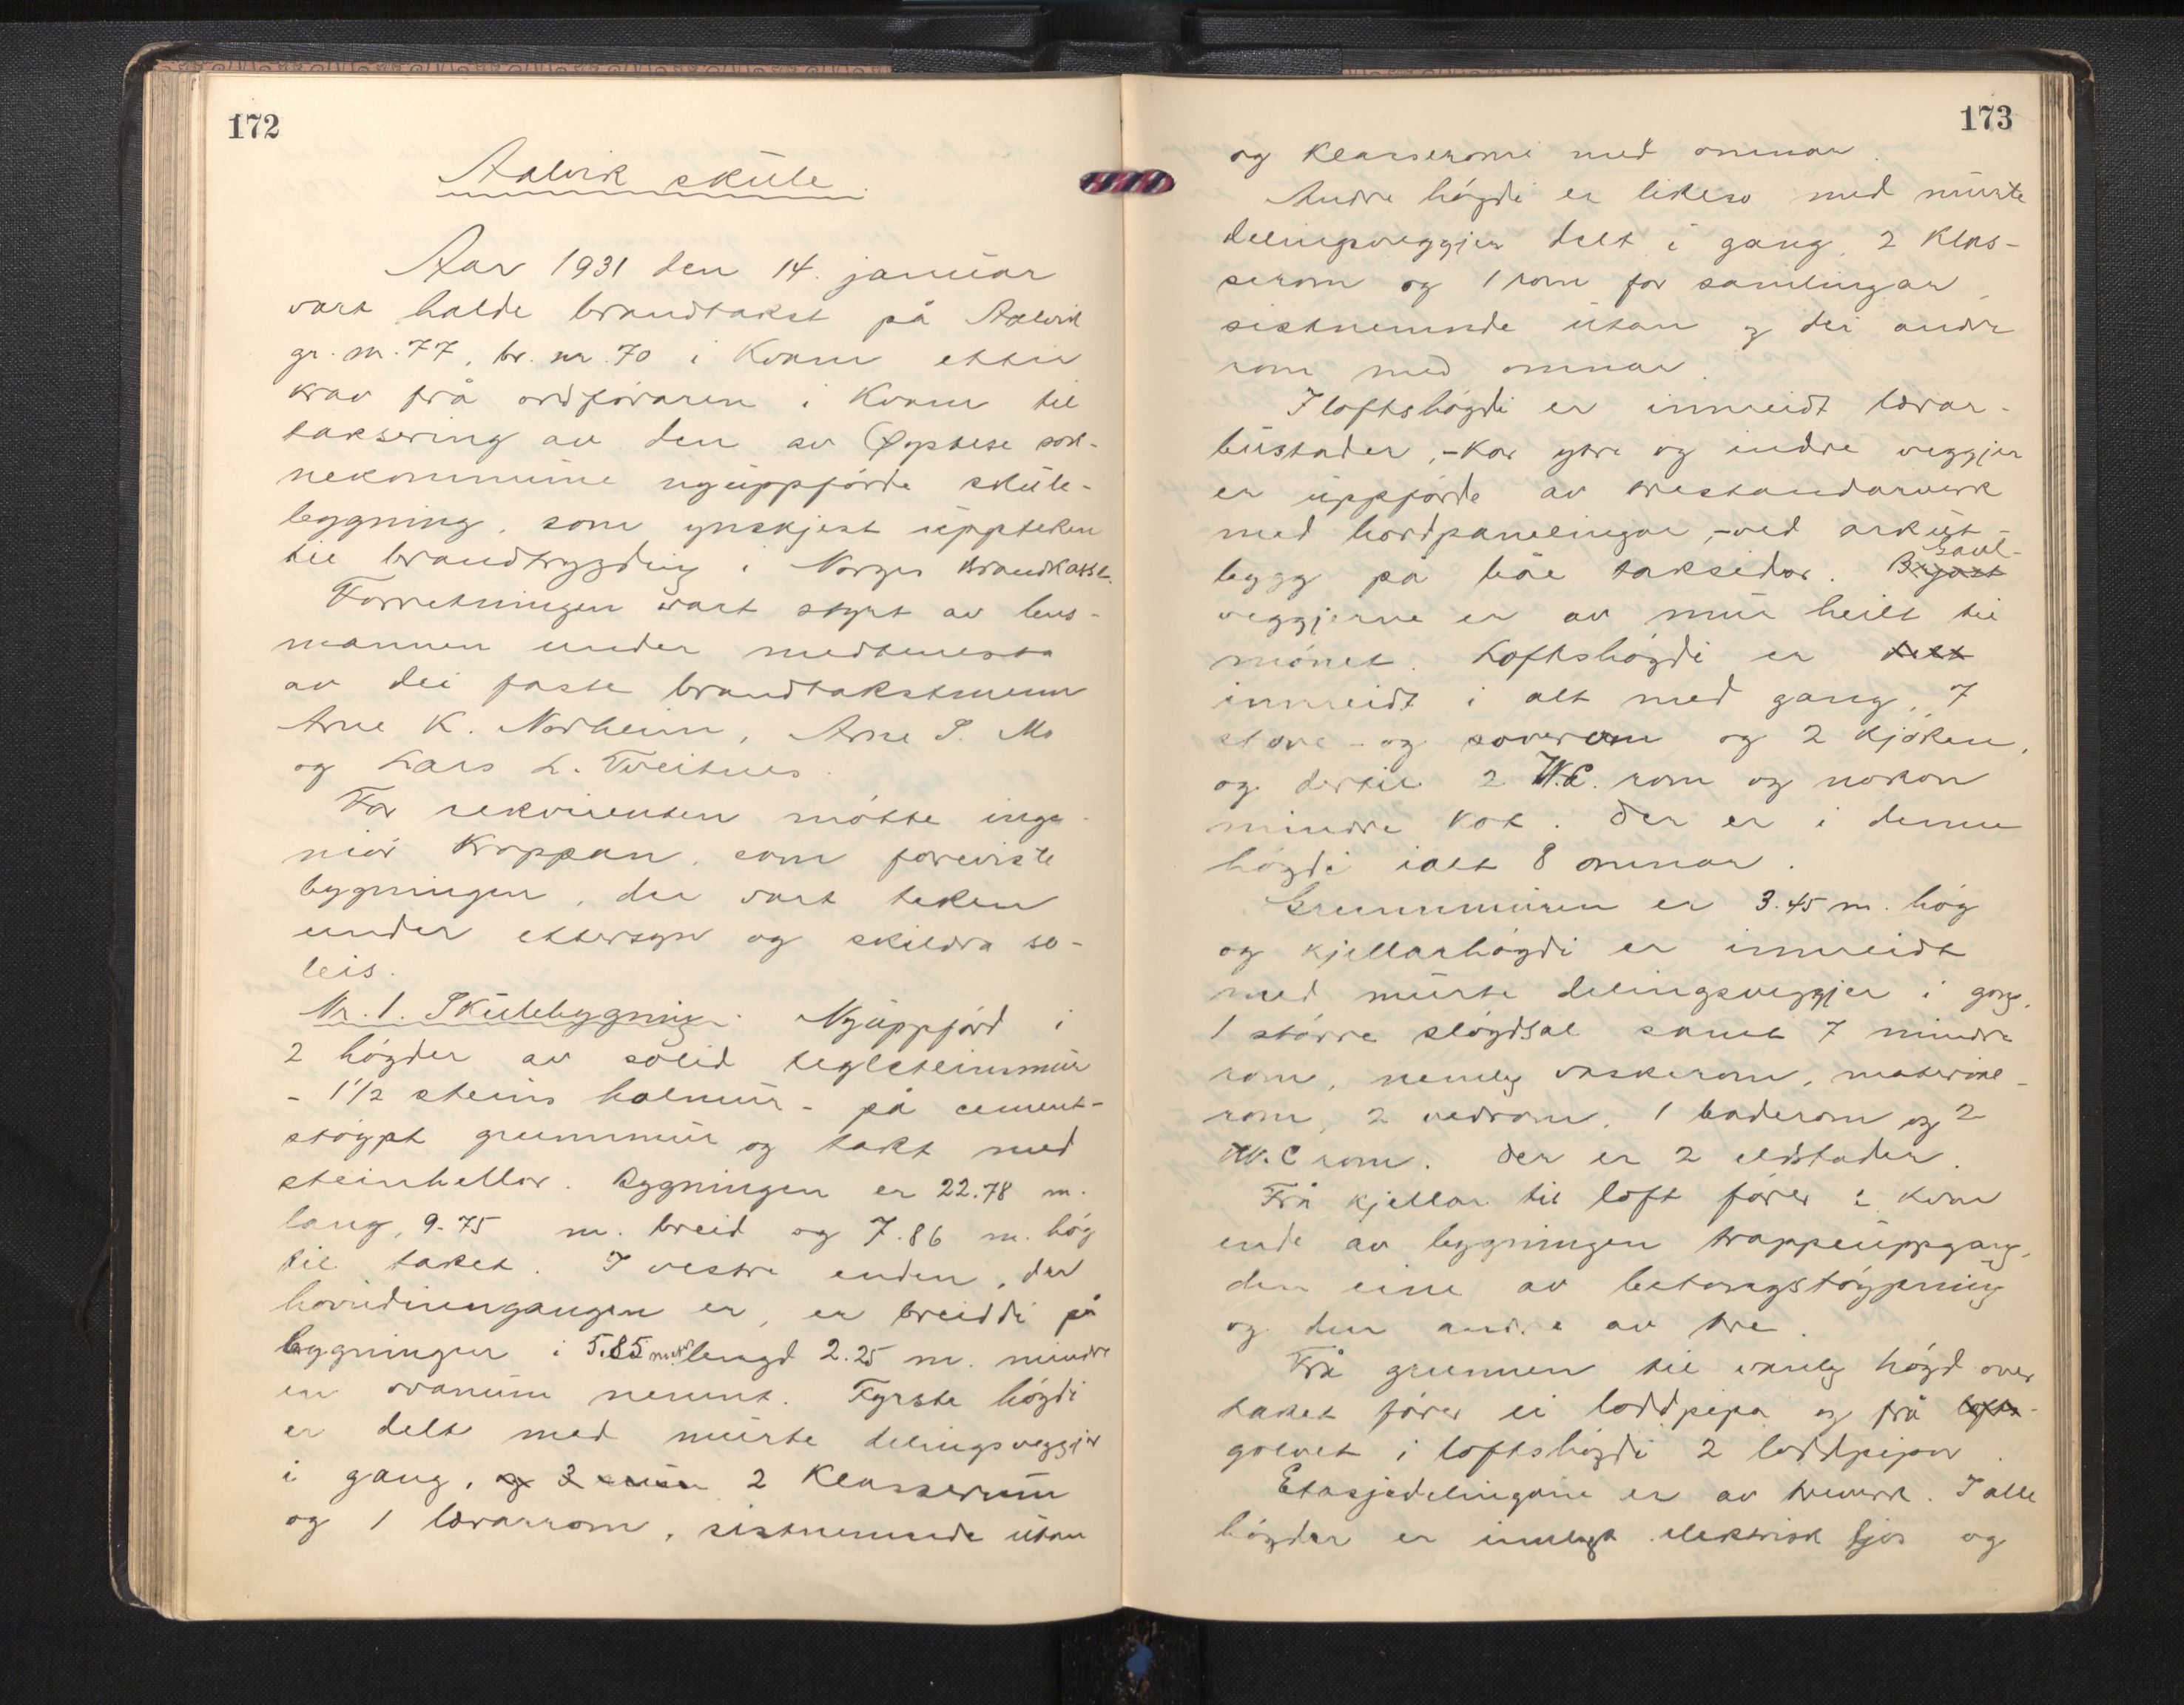 172
Aalvik skule.
Aar 1931 den 14. januar
vart halde brandtakst på Aalvik
gr. nr. 77, br. nr. 70 i Kvam etter
krav frå ordföraren i Kvam til
taksering av den av Øystese sok-
nekommune nyuppförde skule-
bygning, som ynskjest uppteken
til brandtrygding i Norges Brandkasse.
Forretningen vart styrt av lens-
mannen under medtenesta
av dei faste brandtakstmenn
Arne K. Norheim, Arne S. Mo
og Lars L. Tveitnes.
For rekvirenten mötte inge-
niör Kroppan, som foreviste
bygningen, der vart teken
under ettersyn og skildra so-
leis.
Nr. 1. Skulebygning. Nyuppförd i
2 högder av solid teglsteinsmur
- 1 1/2 steins holmur - på cement-
stöypt grunnmur og takt med
steinheller. Bygningen er 22.78 m.
lang, 9.75 m. breid og 7.86 m. hög
til taket. I vestre enden, der
hovudinngangen er, er breiddi på
bygningen i 5.85 meter lengd 2.25 m. mindre
en ovanum nemnt. Fyrste högdi
er delt med murte delingsveggjer
i gang, og 2 Klasserum
og 1 lærarrom, sistnemnde utan
173
og Klasseromi med omnar.
Andre högdi er likeso med murte
delingsveggjer delt i gang, 2 Klas-
serom og 1 rom for samlingar,
sistnemnde utan og dei andre
rom med omnar.
I loftshögdi er innreidt lærar-
bustader, - kor ytre og indre veggjer
er uppförde av trestandarverk
med bordpanelingar, - ved arkut-
Gavl-
bygg på båe taksidor. Bryst
veggjerne er av mur heilt til
mönet. Loftshögdi er delt
innreidt i alt med gang, 7
stove - og soverom og 2 kjöken,
og dertil 2 W.C. rom og nokon
mindre kot. Der er i denne
högdi ialt 8 omnar.
Grunnmuren er 3.45 m. hög
og kjellarhögdi er innreidt
med murte delingsveggjer i gang,
1 större slögdsal samt 7 mindre
rom, nemleg vaskerom, material-
rom, 2 vedrom, 1 baderom og 2
W.C rom. Der er 2 eldstader.
Frå kjellar til loft förer i kvar
ende av bygningen trappeuppgang,
den eine av betongstöypning
og den andre av tre.
Frå grunnen til vanleg högd over
taket förer ei loddpipa og frå lofts-
golvet i loftshögdi 2 loddpipor.
Etasjedelingane er av treverk. I alle
högder er innlagt elektrisk ljos og